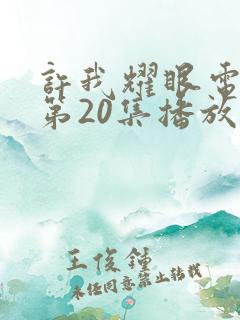 許我耀眼電
第20集播放
王俊鍾
未經同意禁止轉載